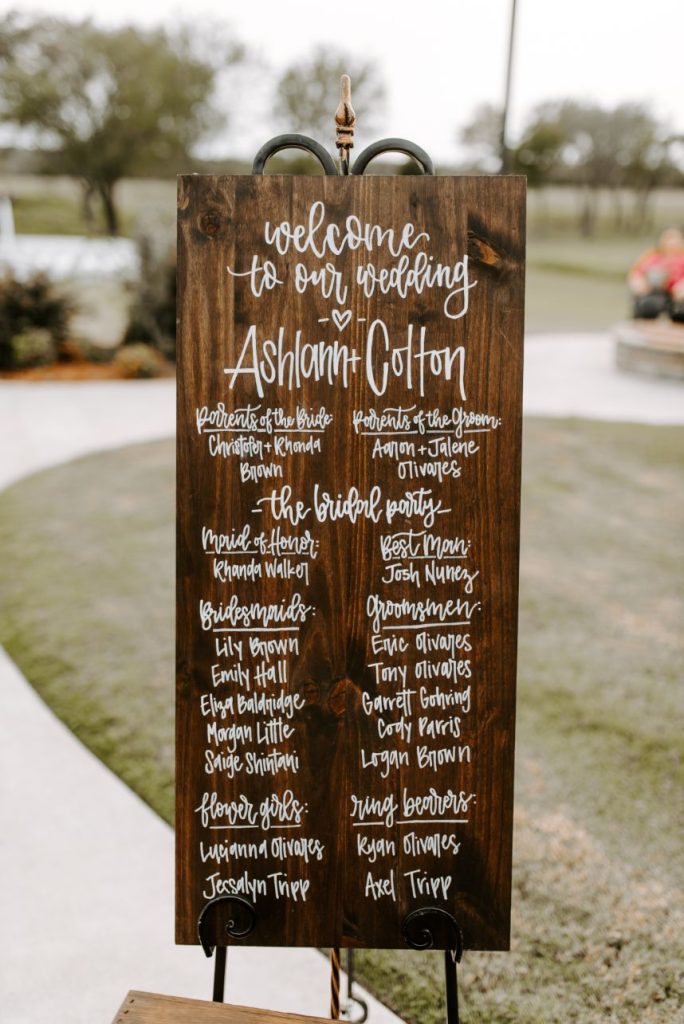 welcome
to our wedding
Ashlann + Colton
Parents of the Bride:
Christofer + Rhonda
Brown
Parents of the Groom:
Aaron + Jalene
Olivares
-the bridal party-
Maid of Honor:
Rhanda Walker
Best Man:
Josh Nunez
Bridesmaids:
Lily Brown
Emily Hall
Eliza Baldridge
Morgan Little
Saige Shintani
Groomsmen:
Eric Olivares
Tony Olivares
Garrett Gohring
Cody Parris
Logan Brown
flower girls:
Lucianna Olivares
Jessalyn Tripp
ring bearers:
Ryan Olivares
Axel Tripp